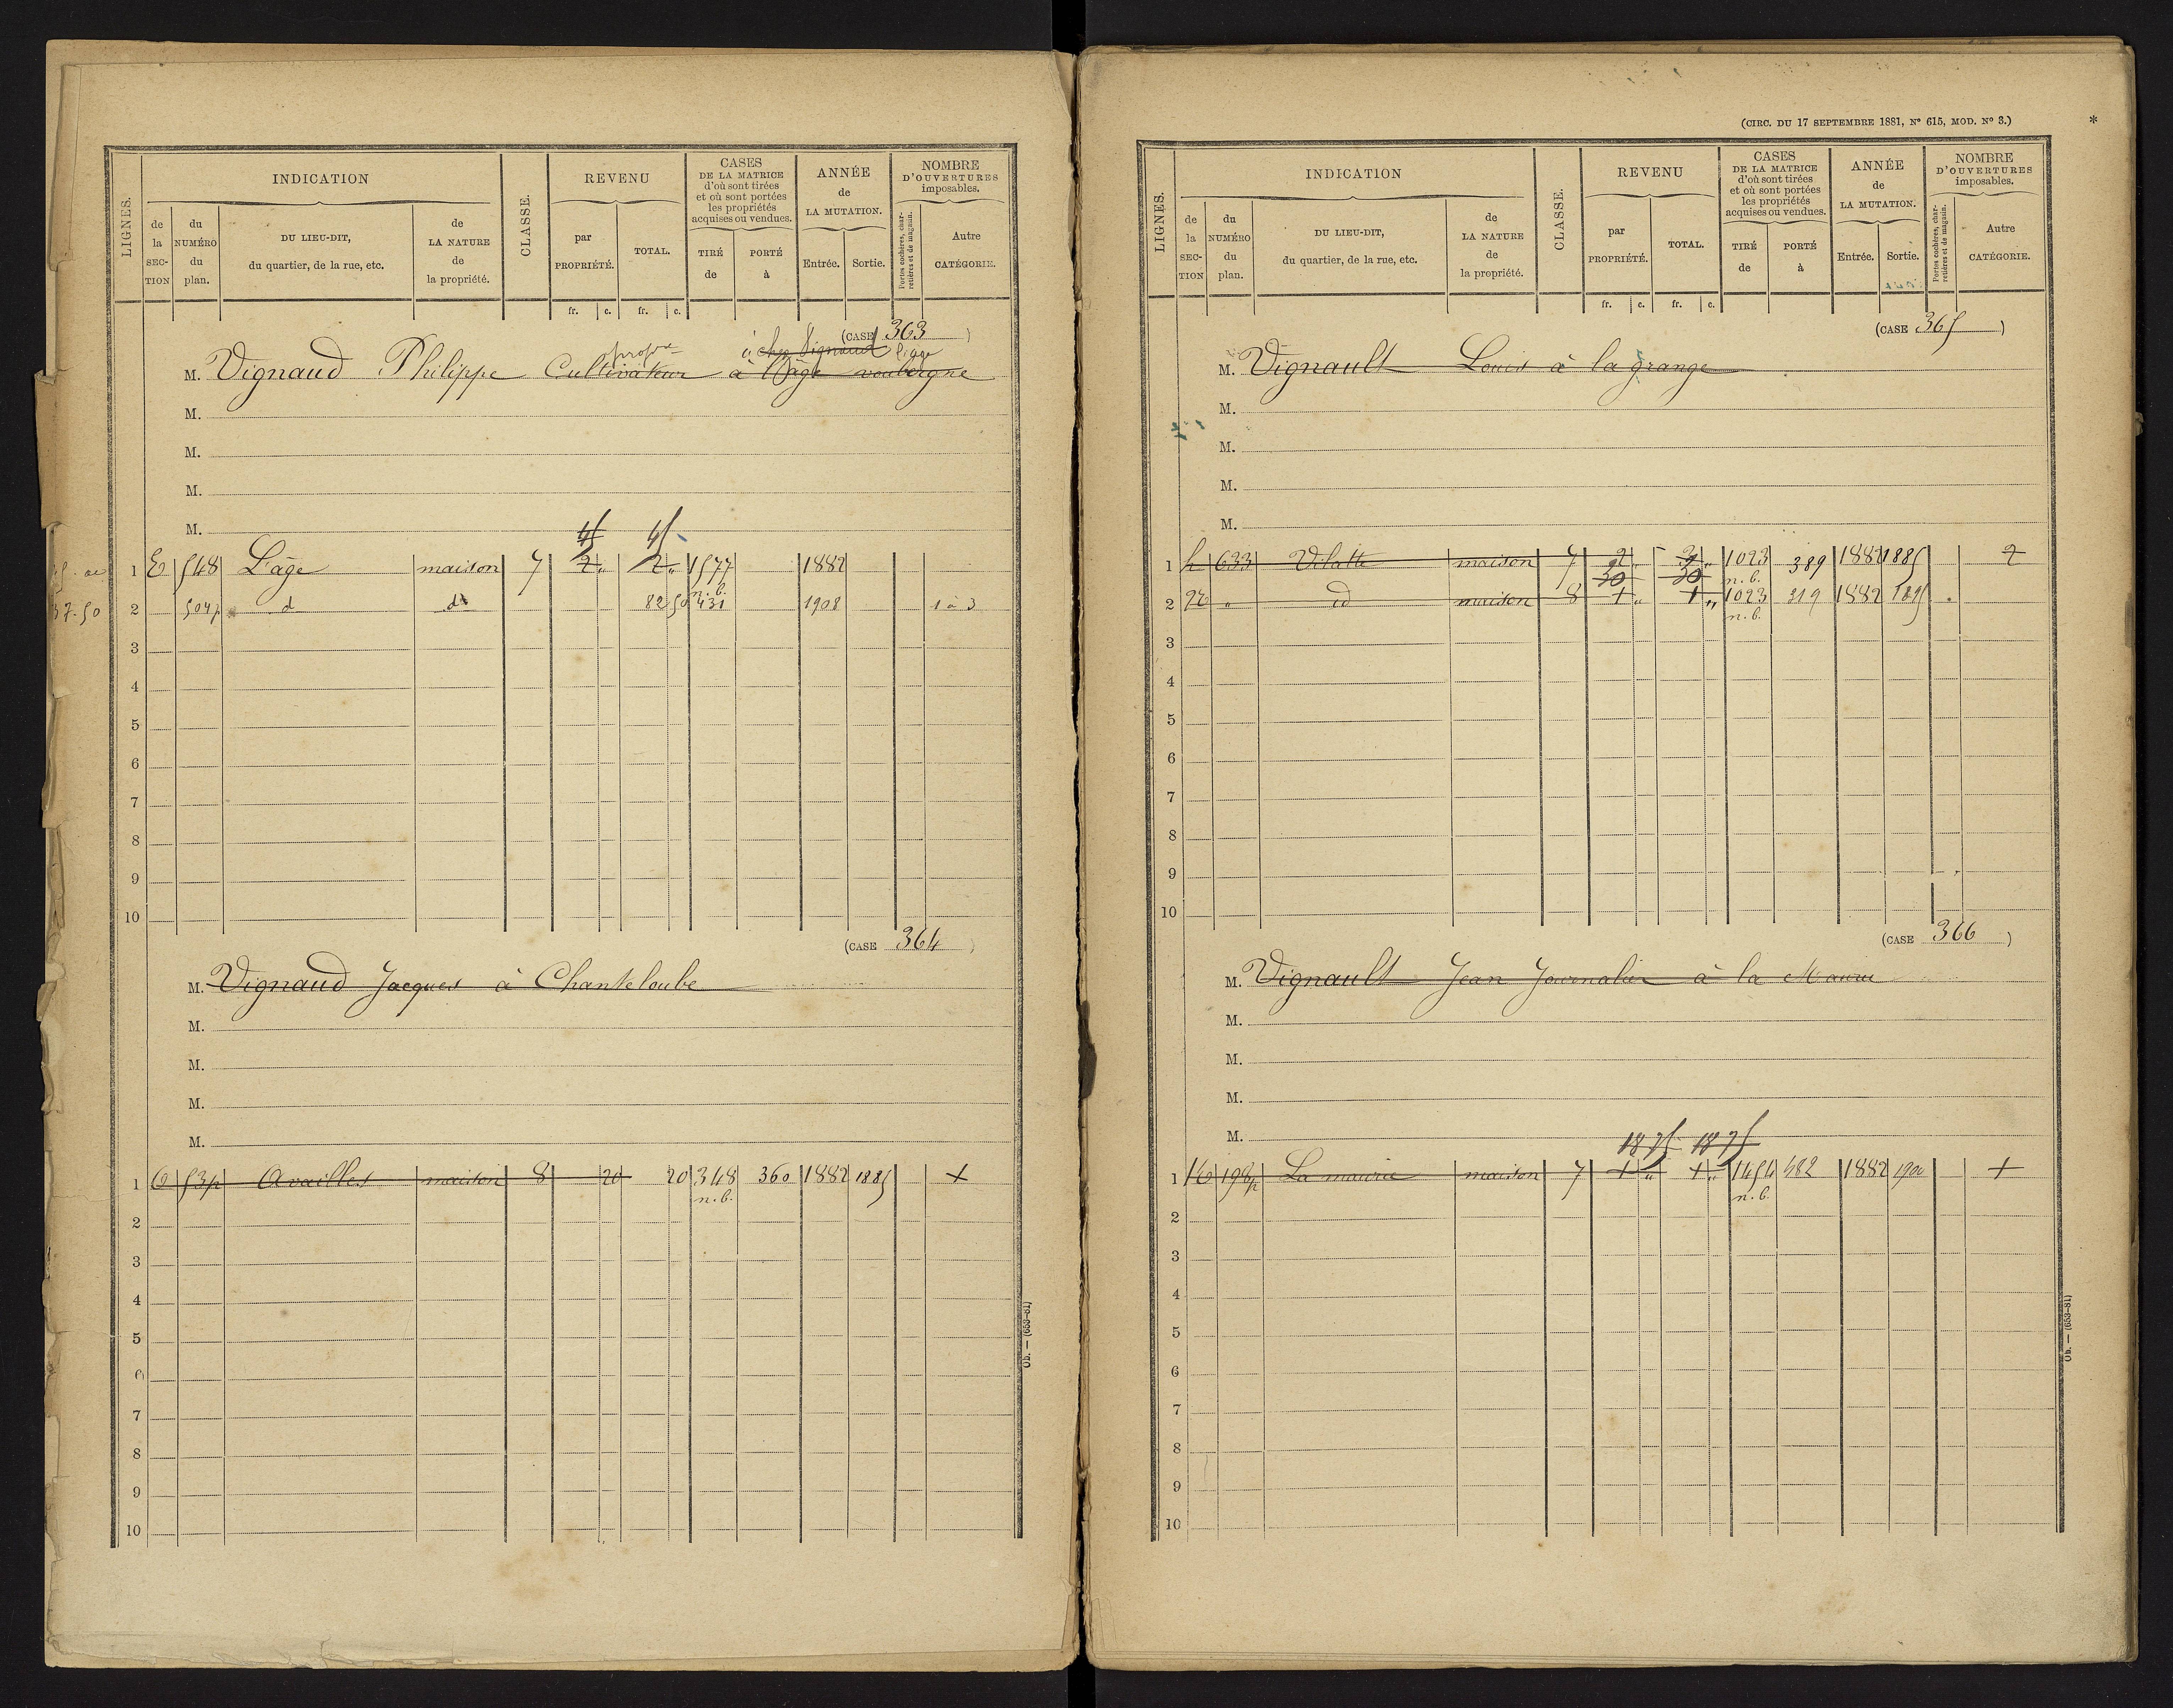 LIGNES.
INDICATION
de la SECTION
du NUMÉRO du plan.
DU LIEU-DIT, du quartier, de la rue, etc.
de LA NATURE de la propriété.
CLASSE.
REVENU
par PROPRIÉTÉ.
TOTAL.
fr. c. fr. c.
CASES DE LA MATRICE d'où sont tirées et où sont portées les propriétés acquises ou vendues.
TIRÉ de
PORTÉ à
ANNÉE de LA MUTATION.
Entrée. Sortie.
NOMBRE D'OUVERTURES imposables.
Portes cochères, charretières et de magasin.
Autre CATÉGORIE.
(CASE 363)
à chez Vignaud l'age
propre
M. Vignaud Philippe Cultivateur à l'âge
M.
M.
M.
M.
45 45
1 E 548 L'age maison 7 2 " 2 " 1577 1882
n. b.
37.50 2 504p d d 82 50 431 1908 1 à 3
3
4
5
6
7
8
9
10
(CASE 364)
M. Vignaud Jacques à Chanteloube
M.
M.
M.
M.
1 C 53p Availles maison 8 20 20 348 360 1882 1885 1
n. b.
2
3
4
5
6
7
8
9
10
Ob. — (653-81)
(CIRC. DU 17 SEPTEMBRE 1881, N° 615, MOD. N° 3.) *
LIGNES.
INDICATION
de la SECTION
du NUMÉRO du plan.
DU LIEU-DIT, du quartier, de la rue, etc.
de LA NATURE de la propriété.
CLASSE.
REVENU
par PROPRIÉTÉ.
TOTAL.
fr. c. fr. c.
CASES DE LA MATRICE d'où sont tirées et où sont portées les propriétés acquises ou vendues.
TIRÉ de
PORTÉ à
ANNÉE de LA MUTATION.
Entrée. Sortie.
NOMBRE D'OUVERTURES imposables.
Portes cochères, charretières et de magasin.
Autre CATÉGORIE.
(CASE 365)
M. Vignault Louis à la grange
M.
M.
M.
M.
1 h 633 Vilatte maison 7 2 " 2 " 1023 389 1882 1885 2
30 30 n. b.
2 " id maison 8 1 " 1 " 1023 319 1882 1895
n. b.
3
4
5
6
7
8
9
10
(CASE 366)
M. Vignault Jean Journalier à la Maurie
M.
M.
M.
M.
18 75 18 75
1 198p La maurie maison 7 1 " 1 " 1454 482 1882 1900 1
n. b.
2
3
4
5
6
7
8
9
10
Ob. — (653-81)